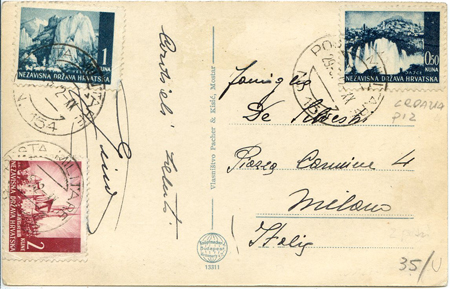 1
KUNA
NEZAVISNA DRŽAVA HRVATSKA
0.50
KUNA
NEZAVISNA DRŽAVA HRVATSKA
POSTA MILITARE
154
2
KUNE
NEZAVISNA DRŽAVA HRVATSKA
Cordiali saluti
Vlasništvo Pacher & Kisić, Mostar
Budapest
13311
Famiglia
De
Piazza Cannine 4
Milano
Italia
CROAZIA
P12
35/N